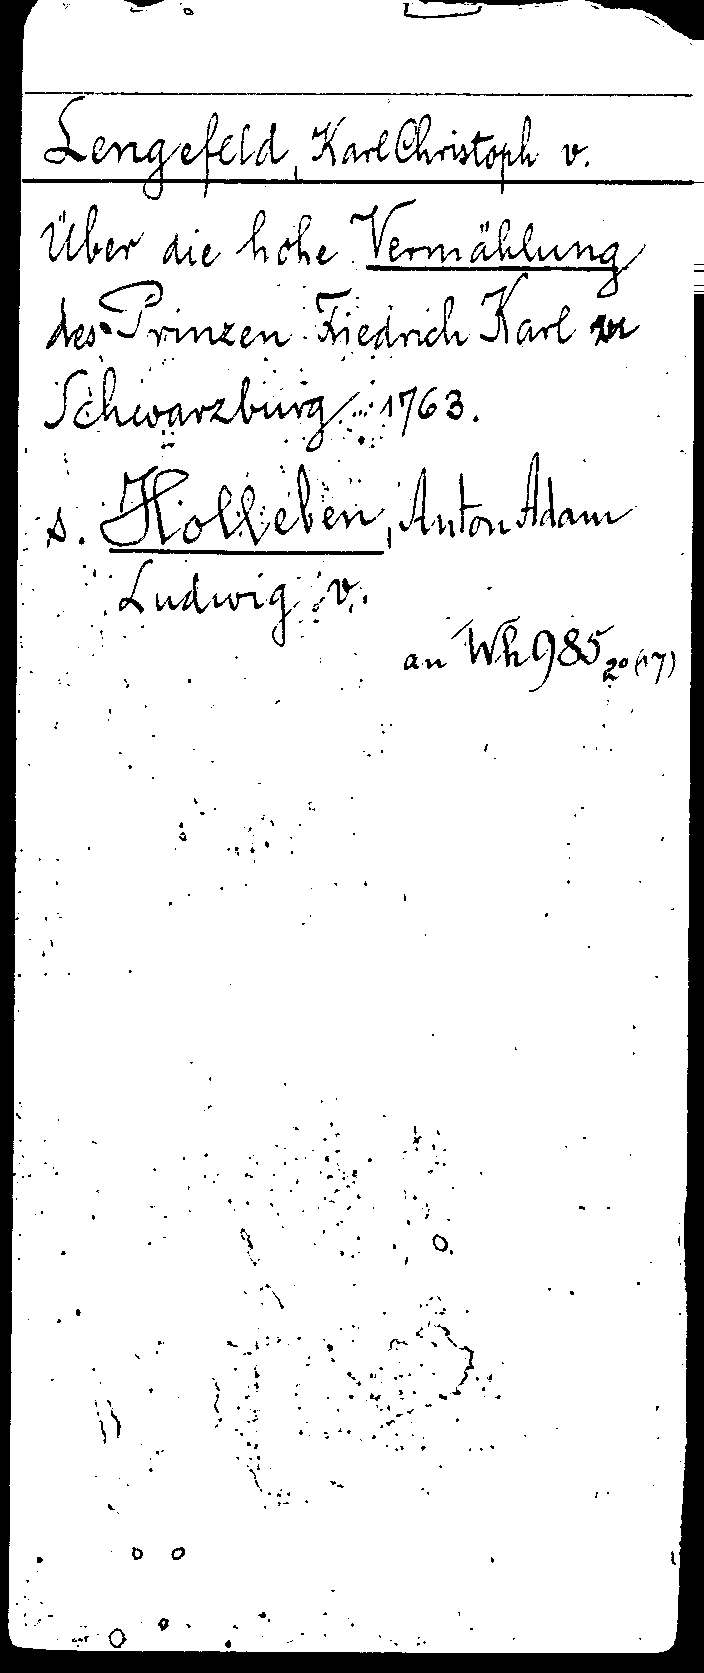 Lengefeld, Karl Christoph v.
Über die hohe Vermählung
des Prinzen Friedrich Karl zu
Schwarzburg 1763.
s. Holleben, Anton Adam
Ludwig v.
an Wh 985 2° (17)